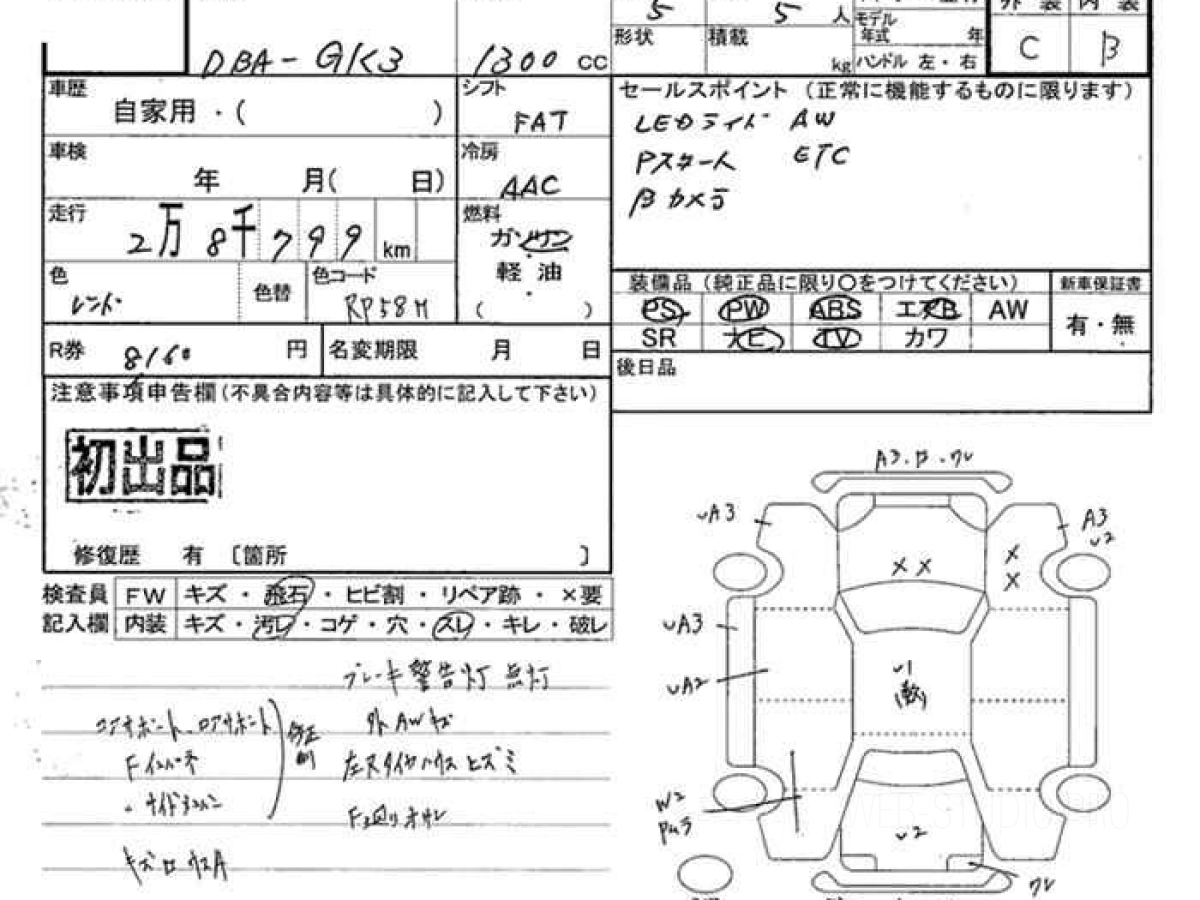 5 5 人 外 装 内 装
モデル
年式 年
形状 積載 C B
DBA-GK3 1300 cc kg ハンドル 左・右
車歴 シフト セールスポイント (正常に機能するものに限ります)
自家用・( ) FAT LEDライト AW
車検 冷房 Pスタート ETC
年 月( 日) AAC Bカメラ
走行 燃料
2万 8千 799 km ガソリン
軽・油
( )
色 色替 色コード
レッド RP58M
装備品 (純正品に限り〇をつけてください) 新車保証書
PS PW ABS エアB AW 有・無
SR ナビ TV カワ
R券 8160 円 名変期限 月 日
後日品
注意事項申告欄(不具合内容等は具体的に記入して下さい)
初出品
修復歴 有 〔箇所 〕
検査員 FW キズ・飛石・ヒビ割・リペア跡・×要
記入欄 内装 キズ・汚レ・コゲ・穴・スレ・キレ・破レ
ブレーキ警告灯 点灯
コアサポート、ロアサポート 修正
外AWキズ
Fインパネ
左Rタイヤハウス ヒズミ
・サイドメンバー
F廻り オサレ
A3・B・ワレ
UA3 A3
U2
× × ×
×
UA3
UA2
U1
W2
U2
ワレ